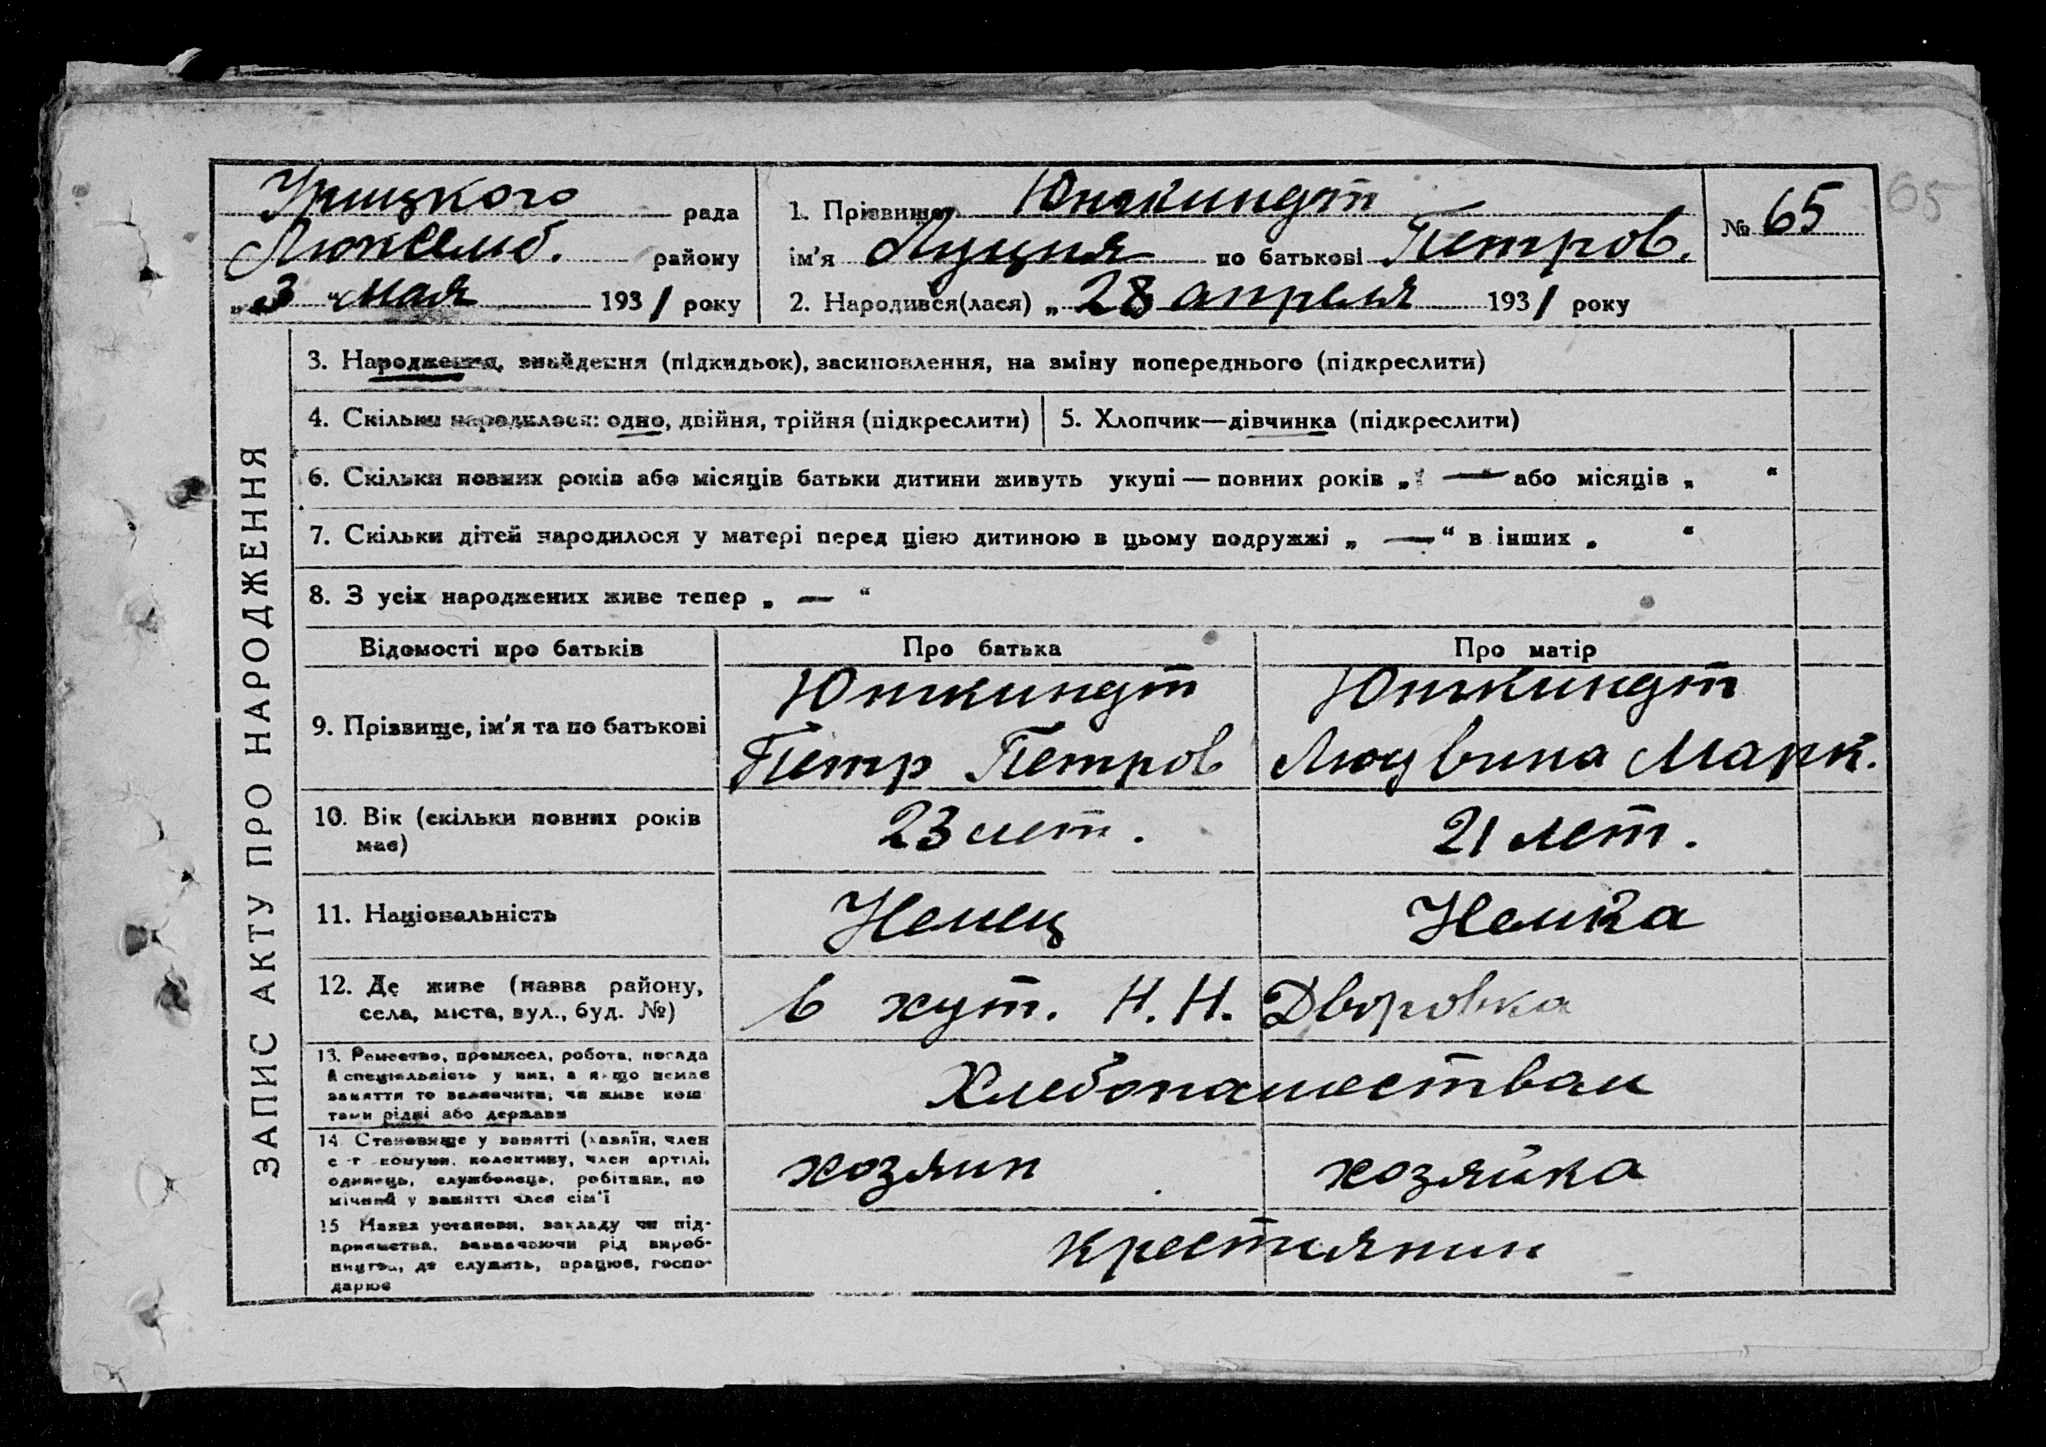 Урицкого рада
Люксемб. району
„3" мая 1931 року
1. Прізвище Юнгкиндт
ім'я Луция по батькові Петров.
2. Народився(лася) „28 апреля 1931 року
№ 65
65
ЗАПИС АКТУ ПРО НАРОДЖЕННЯ
3. Народження, знайдення (підкидьок), засиновлення, на зміну попереднього (підкреслити)
4. Скільки народилося: одно, двійня, трійня (підкреслити)
5. Хлопчик—дівчинка (підкреслити)
6. Скільки повних років або місяців батьки дитини живуть укупі — повних років „ — “ або місяців „ “
7. Скільки дітей народилося у матері перед цією дитиною в цьому подружжі „ — “ в інших „ “
8. З усіх народжених живе тепер „ — “
Відомості про батьків
Про батька
Про матір
9. Прізвище, ім'я та по батькові
Юнгкиндт
Петр Петров
Юнгкиндт
Людвина Марк.
10. Вік (скільки повних років
має)
23 лет.
21 лет.
11. Національність
Немец
Немка
12. Де живе (назва району,
села, міста, вул., буд. №)
в хут. Н.Н. Дворовка
13. Ремество, промисел, робота, посада
й спеціяльність у них, а якщо немає
заняття то зазначити, чи живе кош
тами рідні або держави
Хлебопашеством
14. Становище у занятті (хазяїн, член
с-г комуни, колективу, член артілі,
одинець, службовець, робітник, по
мічний у занятті член сім'ї
хозяин
хозяйка
15 Назва установи, закладу чи під-
приємства, зазначаючи рід вироб-
ництва, де служить, працює, госпо-
дарює
крестиянин